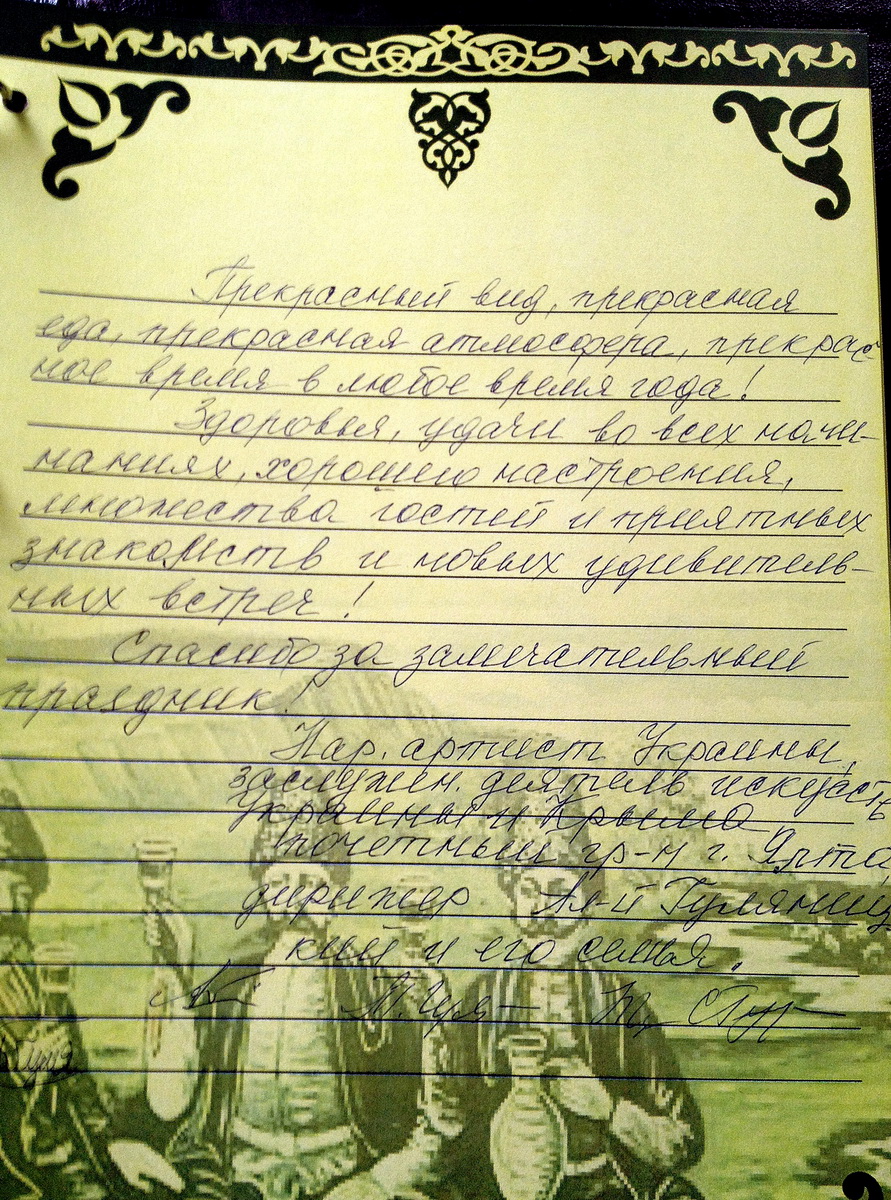 Прекрасный вид, прекрасная
еда, прекрасная атмосфера, прекрас
ное время в любое время года!
Здоровья, удачи во всех начи-
наниях, хорошего настроения,
множества гостей и приятных
знакомств и новых удивитель-
ных встреч!
Спасибо за замечательный
праздник!
Нар. артист Украины,
заслужен. деятель искусств
Украины и Крыма
почетный гр-н г. Ялта,
дирижер Ал-й Гуляниц
кий и его семья.